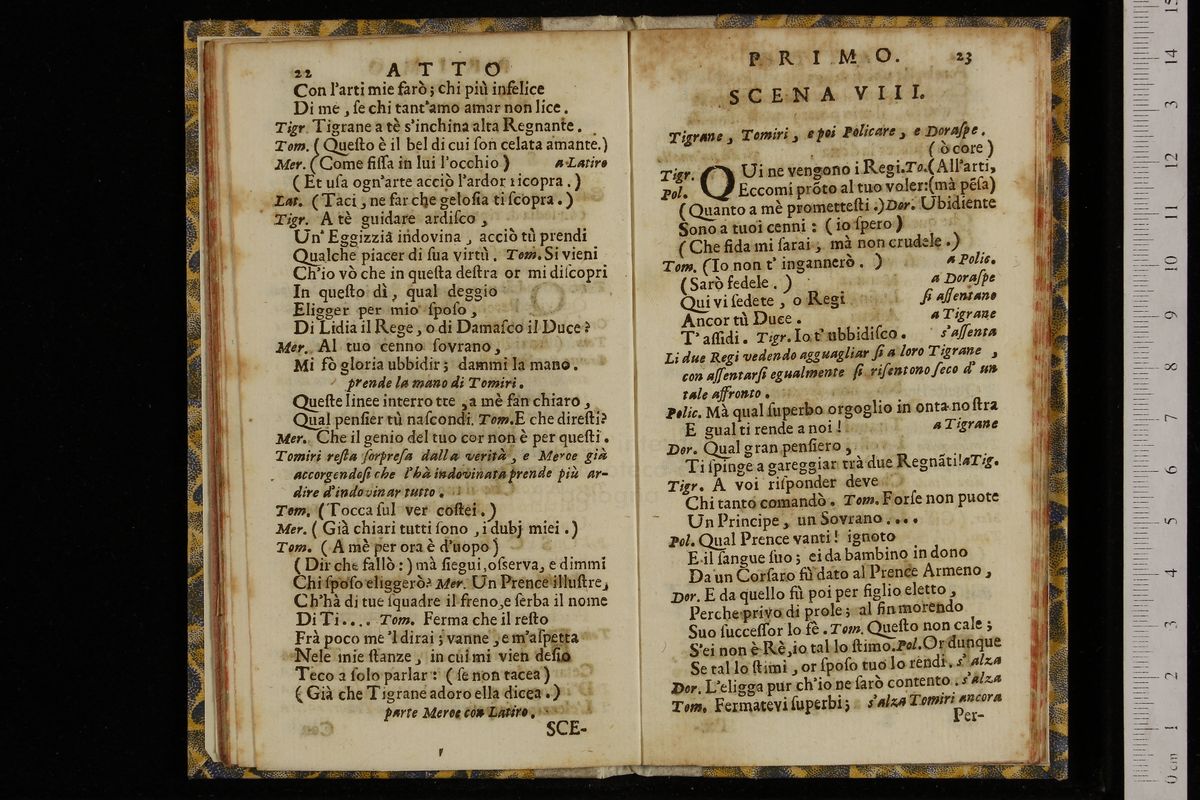 22 ATTO
Con l'arti mie farò; chi più infelice
Di me, ſe chi tant'amo amar non lice.
Tigr. Tigrane a tè s'inchina alta Regnante.
Tom. (Queſto è il bel di cui ſon celata amante.)
Mer. (Come fiſſa in lui l'occhio) a Latiro
(Et uſa ogn'arte acciò l'ardor ricopra.)
Lat. (Taci, ne far che geloſia ti ſcopra.)
Tigr. A tè guidare ardiſco,
Un' Eggizzia indovina, acciò tù prendi
Qualche piacer di ſua virtù. Tom. Si vieni
Ch'io vò che in queſta deſtra or mi diſcopri
In queſto dì, qual deggio
Eligger per mio ſpoſo,
Di Lidia il Rege, o di Damaſco il Duce?
Mer. Al tuo cenno ſovrano,
Mi fò gloria ubbidir; dammi la mano.
prende la mano di Tomiri.
Queſte linee interro tte, a mè fan chiaro,
Qual penſier tù naſcondi. Tom. E che direſti?
Mer. Che il genio del tuo cor non è per queſti.
Tomiri reſta ſorpreſa dalla verità, e Meroe già
accorgendoſi che l'hà indovinata prende più ar-
dire d'indovinar tutto.
Tom. (Tocca ſul ver coſtei.)
Mer. (Già chiari tutti ſono, i dubj miei.)
Tom. (A mè per ora è d'uopo)
(Dir che fallò:) mà ſiegui, oſerva, e dimmi
Chi ſpoſo eliggerò? Mer. Un Prence illuſtre,
Ch'hà di tue ſquadre il freno, e ſerba il nome
Di Ti.... Tom. Ferma che il reſto
Frà poco me 'l dirai; vanne, e m'aſpetta
Nele mie ſtanze, in cui mi vien deſio
Teco a ſolo parlar: (ſe non tacea)
(Già che Tigrane adoro ella dicea.)
parte Meroe con Latiro.
SCE-
PRIMO. 23
SCENA VIII.
Tigrane, Tomiri, e poi Policare, e Doraſpe.
(ò core)
Tigr. QUi ne vengono i Regi. To. (All'arti,
Pol. Eccomi prõto al tuo voler: (mà pẽſa)
(Quanto a mè prometteſti.) Dor. Ubidiente
Sono a tuoi cenni: (io ſpero)
(Che fida mi ſarai, mà non crudele.)
Tom. (Io non t' ingannerò.) a Polic.
(Sarò fedele.) a Doraſpe
Qui vi ſedete, o Regi ſi aſſentano
Ancor tù Duce. a Tigrane
T' aſſidi. Tigr. Io t' ubbidiſco. s'aſſenta
Li due Regi vedendo agguagliar ſi a loro Tigrane,
con aſſentarſi egualmente ſi riſentono ſeco d' un
tale affronto.
Polic. Mà qual ſuperbo orgoglio in onta noſtra
E gual ti rende a noi! a Tigrane
Dor. Qual gran penſiero,
Ti ſpinge a gareggiar trà due Regnãti! a Tig.
Tigr. A voi riſponder deve
Chi tanto comandò. Tom. Forſe non puote
Un Principe, un Sovrano....
Pol. Qual Prence vanti! ignoto
E il ſangue ſuo; ei da bambino in dono
Da un Corſaro fù dato al Prence Armeno,
Dor. E da quello fù poi per figlio eletto,
Perche privo di prole; al fin morendo
Suo ſucceſſor lo fè. Tom. Queſto non cale;
S'ei non è Rè, io tal lo ſtimo. Pol. Or dunque
Se tal lo ſtimi, or ſpoſo tuo lo rendi. s'alza
Dor. L'eligga pur ch'io ne ſarò contento. s'alza
Tom. Fermatevi ſuperbi; s'alza Tomiri ancora
Per-